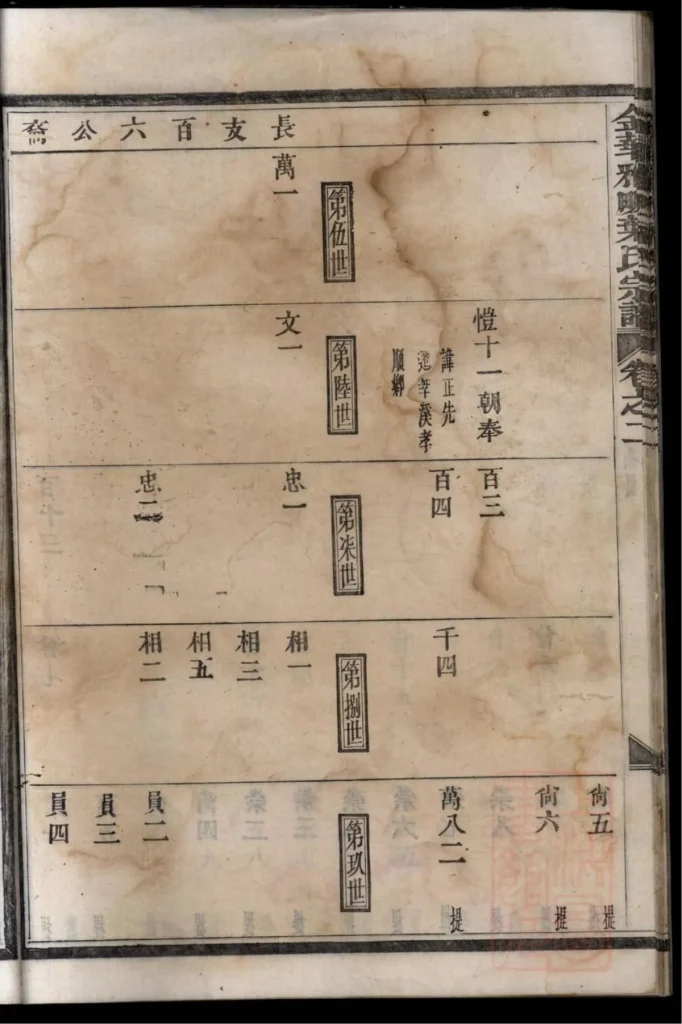 金華雅畈葉氏宗譜
卷之二
愷十一朝奉
諱正先
遷莘溪孝
順鄉
百三
百四
千四
尙五
提
尙六
提
萬八二
提
長支百六公裔
第伍世
第陸世
第柒世
第捌世
第玖世
萬一
文一
忠一
忠二
相一
相三
相五
相二
員二
員三
員四